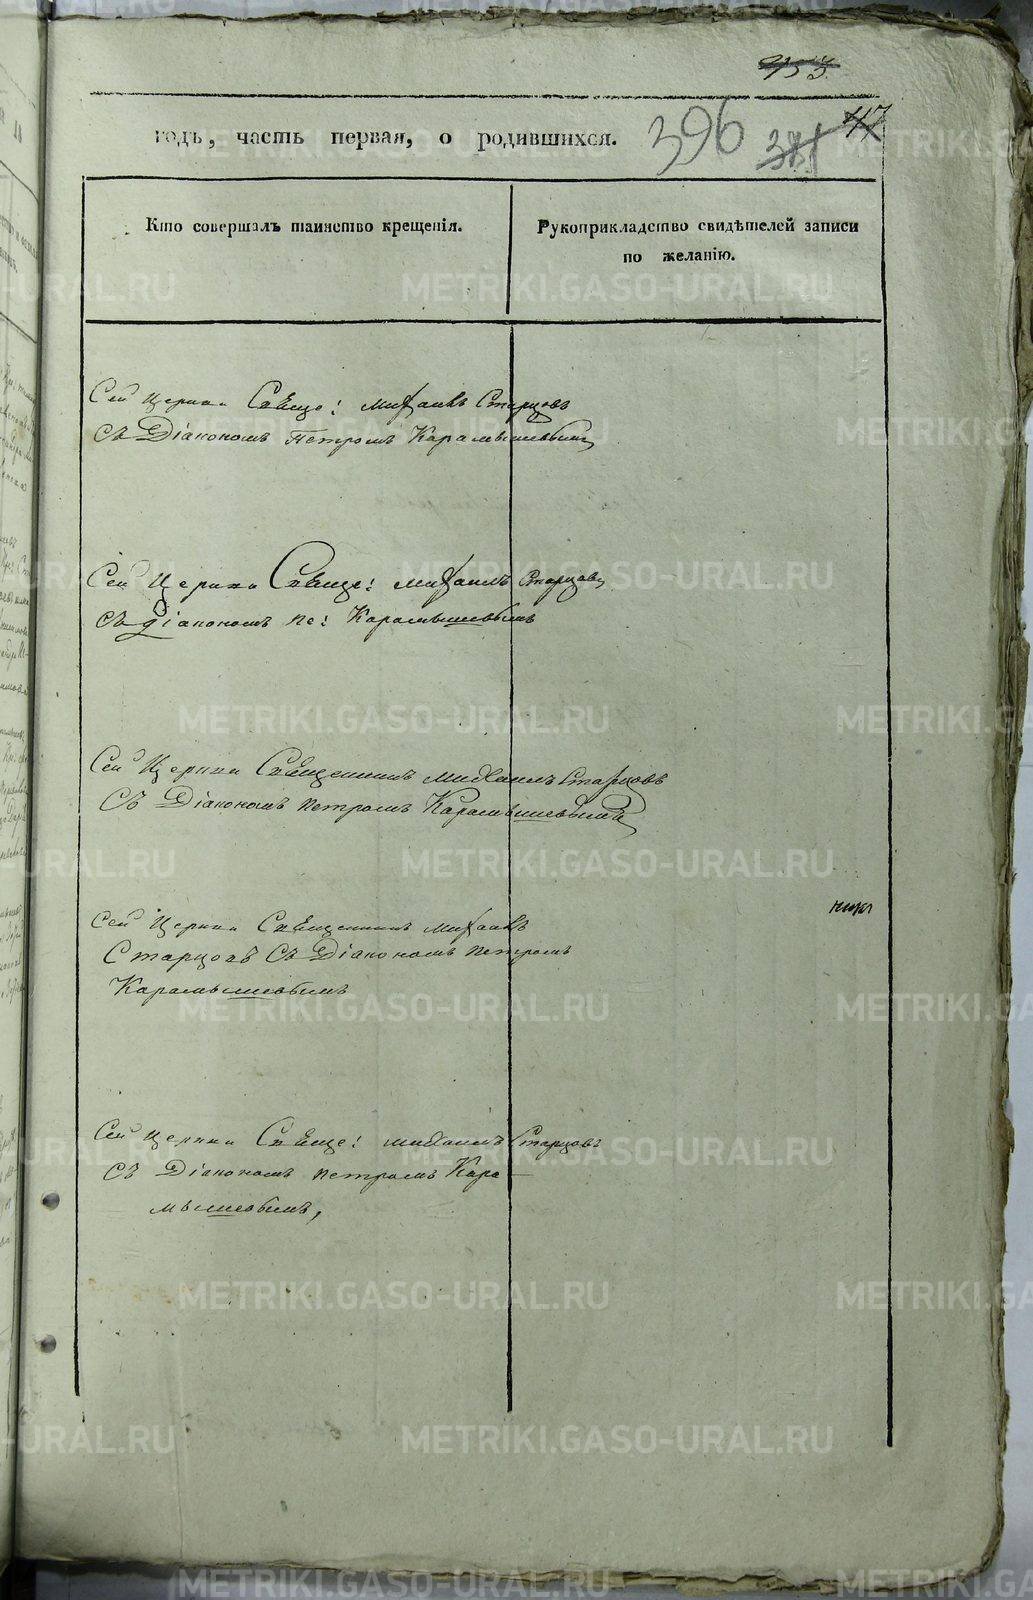 953
годъ, часть первая, о родившихся. 396 381 47
Кто совершалъ таинство крещенія.
Рукоприкладство свидѣтелей записи
по желанію.
Сей Церкви Свѣще: Михаилъ Старцовъ
Съ Діакономъ Петромъ Карамышевымъ
Сей Церкви Свѣще: Михаилъ Старцовъ
Съ діакономъ пе: Карамышевымъ
Сей Церкви Свѣщенникъ Михаилъ Старцовъ
Съ Діакономъ Петромъ Карамышевымъ
Сей Церкви Свѣщенникъ Михаилъ
Старцовъ Съ Діакономъ Петромъ
Карамышевымъ
Сей Церкви Свѣще: Михаилъ Старцовъ
Съ Діакономъ Петромъ Кара
мышевымъ,
METRIKI.GASO-URAL.RU